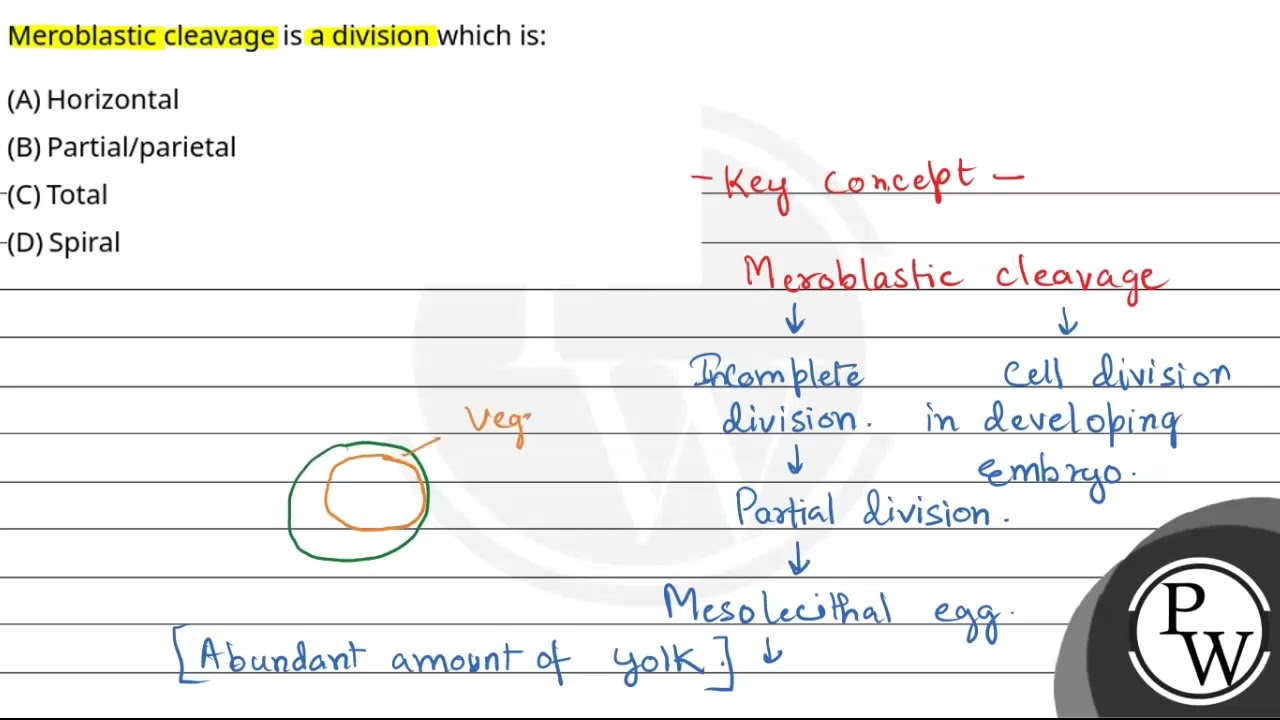 Meroblastic cleavage is a division which is:
(A) Horizontal
(B) Partial/parietal
(C) Total
(D) Spiral
- Key concept -
Meroblastic cleavage
↓ ↓
Incomplete cell division
division. in developing
↓ embryo.
Partial division.
↓
Mesolecithal egg.
[Abundant amount of yolk.] ↓
Veg
PW